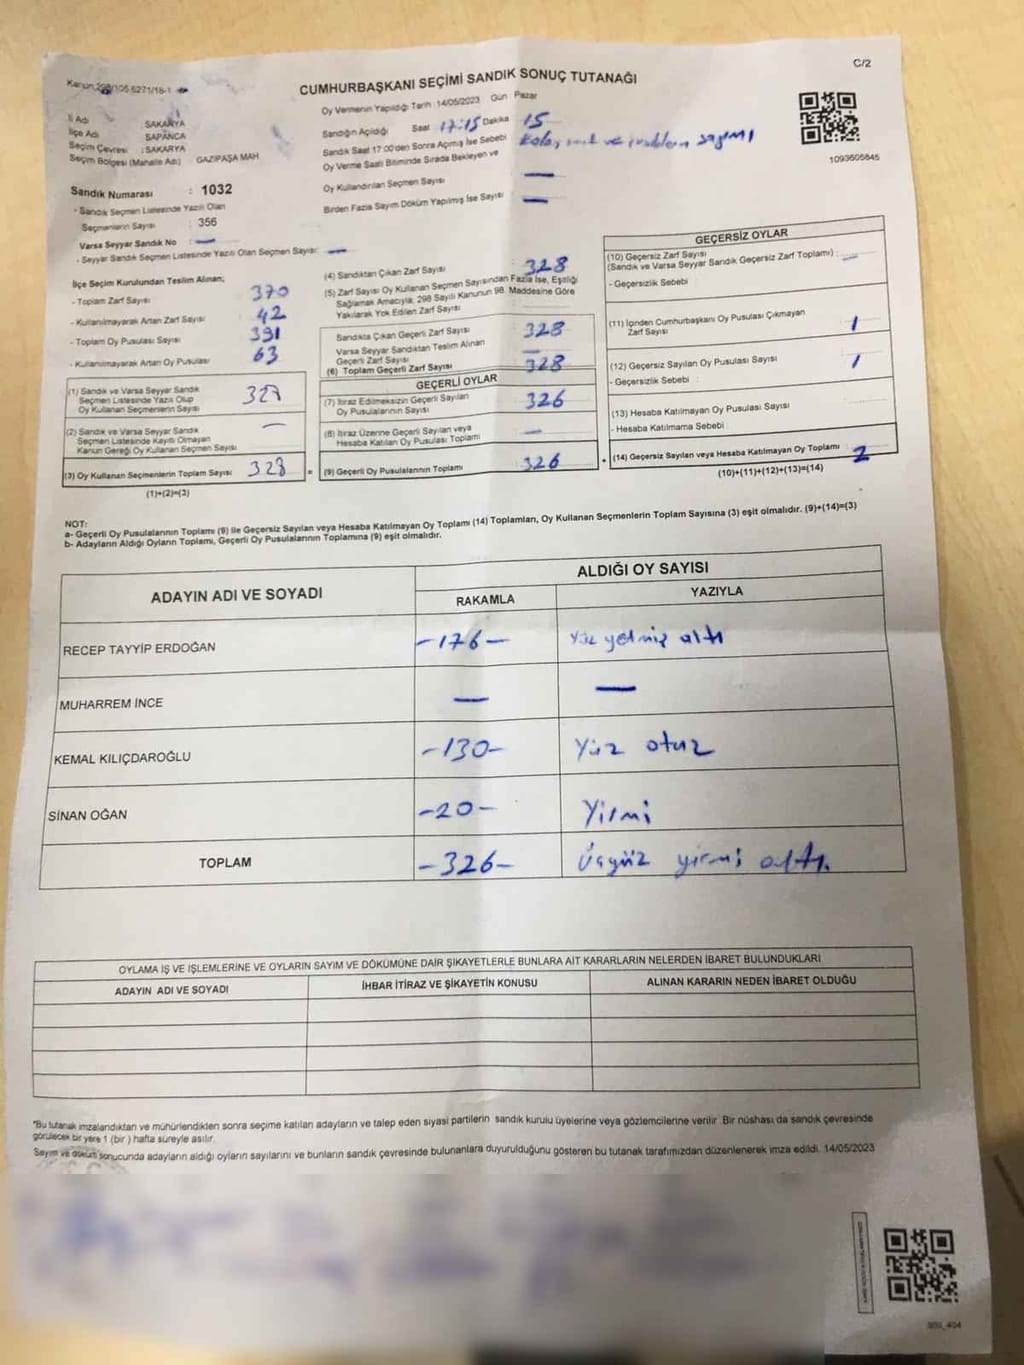 C/2
CUMHURBAŞKANI SEÇİMİ SANDIK SONUÇ TUTANAĞI
Oy Vermenin Yapıldığı Tarih :14/05/2023 Gün Pazar
İl Adı SAKARYA
İlçe Adı SAPANCA
Seçim Çevresi : SAKARYA
Seçim Bölgesi (Mahalle Adı) GAZİPAŞA MAH
Sandığın Açıldığı Saat 17:15 Dakika 15
Sandık Saat 17:00'den Sonra Açımış İse Sebebi
Oy Verme Saati Bitiminde Sırada Bekleyen ve
Oy Kullandırılan Seçmen Sayısı —
Birden Fazla Sayım Döküm Yapılmış İse Sayısı —
1093605845
Sandık Numarası : 1032
- Sandık Seçmen Listesinde Yazılı Olan
Seçmenlerin Sayısı : 356
Varsa Seyyar Sandık No : —
- Seyyar Sandık Seçmen Listesinde Yazılı Olan Seçmen Sayısı: —
İlçe Seçim Kurulundan Teslim Alınan;
- Toplam Zarf Sayısı 370
- Kullanılmayarak Artan Zarf Sayısı 42
- Toplam Oy Pusulası Sayısı 391
- Kullanılmayarak Artan Oy Pusulası 63
(1) Sandık ve Varsa Seyyar Sandık
Seçmen Listesinde Yazılı Olup
Oy Kullanan Seçmenlerin Sayısı
(2) Sandık ve Varsa Seyyar Sandık
Seçmen Listesinde Kayıtlı Olmayan
Kanun Gereği Oy Kullanan Seçmen Sayısı —
(3) Oy Kullanan Seçmenlerin Toplam Sayısı 328
(1)+(2)=(3)
(4) Sandıktan Çıkan Zarf Sayısı 328
(5) Zarf Sayısı Oy Kullanan Seçmen Sayısından Fazla İse, Eşitliği
Sağlamak Amacıyla, 298 Sayılı Kanunun 98. Maddesine Göre
Yakılarak Yok Edilen Zarf Sayısı
Sandıkta Çıkan Geçerli Zarf Sayısı 328
Varsa Seyyar Sandıktan Teslim Alınan
Geçerli Zarf Sayısı —
(6) Toplam Geçerli Zarf Sayısı 328
GEÇERLİ OYLAR
(7) İtiraz Edilmeksizin Geçerli Sayılan
Oy Pusulalarının Sayısı 326
(8) İtiraz Üzerine Geçerli Sayılan veya
Hesaba Katılan Oy Pusulası Toplamı —
= (9) Geçerli Oy Pusulalarının Toplamı 326
GEÇERSİZ OYLAR
(10) Geçersiz Zarf Sayısı
(Sandık ve Varsa Seyyar Sandık Geçersiz Zarf Toplamı) : —
- Geçersizlik Sebebi
(11) İçinden Cumhurbaşkanı Oy Pusulası Çıkmayan
Zarf Sayısı 1
(12) Geçersiz Sayılan Oy Pusulası Sayısı 1
- Geçersizlik Sebebi :
(13) Hesaba Katılmayan Oy Pusulası Sayısı
- Hesaba Katılmama Sebebi :
+ (14) Geçersiz Sayılan veya Hesaba Katılmayan Oy Toplamı 2
(10)+(11)+(12)+(13)=(14)
NOT:
a- Geçerli Oy Pusulalarının Toplamı (9) ile Geçersiz Sayılan veya Hesaba Katılmayan Oy Toplamı (14) Toplamları, Oy Kullanan Seçmenlerin Toplam Sayısına (3) eşit olmalıdır. (9)+(14)=(3)
b- Adayların Aldığı Oyların Toplamı, Geçerli Oy Pusulalarının Toplamına (9) eşit olmalıdır.
ADAYIN ADI VE SOYADI
ALDIĞI OY SAYISI
RAKAMLA YAZIYLA
RECEP TAYYİP ERDOĞAN -176- Yüz yetmiş altı
MUHARREM İNCE — —
KEMAL KILIÇDAROĞLU -130- Yüz otuz
SİNAN OĞAN -20- Yirmi
TOPLAM -326- Üçyüz yirmi altı.
OYLAMA İŞ VE İŞLEMLERİNE VE OYLARIN SAYIM VE DÖKÜMÜNE DAİR ŞİKAYETLERLE BUNLARA AİT KARARLARIN NELERDEN İBARET BULUNDUKLARI
ADAYIN ADI VE SOYADI İHBAR İTİRAZ VE ŞİKAYETİN KONUSU ALINAN KARARIN NEDEN İBARET OLDUĞU
*Bu tutanak imzalandıktan ve mühürlendikten sonra seçime katılan adayların ve talep eden siyasi partilerin sandık kurulu üyelerine veya gözlemcilerine verilir. Bir nüshası da sandık çevresinde
görülecek bir yere 1 (bir) hafta süreyle asılır.
Sayım ve döküm sonucunda adayların aldığı oyların sayılarını ve bunların sandık çevresinde bulunanlara duyurulduğunu gösteren bu tutanak tarafımızdan düzenlenerek imza edildi. 14/05/2023